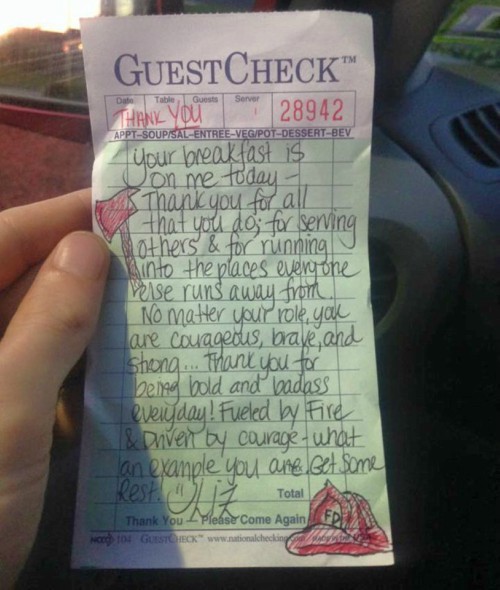 GUESTCHECK™
Date Table Guests Server
THANK YOU 28942
APPT-SOUP/SAL-ENTREE-VEG/POT-DESSERT-BEV
your breakfast is
on me today -
Thank you for all
that you do; for serving
others & for running
into the places everyone
else runs away from.
No matter your role, you
are courageous, brave, and
strong... Thank you for
being bold and badass
everyday! Fueled by Fire
& Driven by courage - what
an example you are. Get some
Rest. Liz
Total
FD
Thank You - Please Come Again
104 GUESTCHECK™ www.nationalchecking